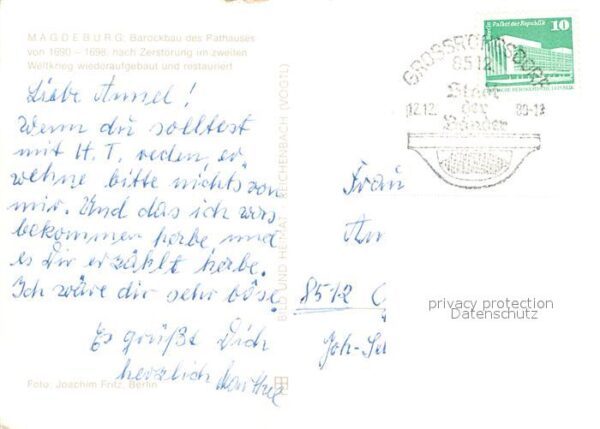 MAGDEBURG: Barockbau des Rathauses
von 1690 - 1698, nach Zerstörung im zweiten
Weltkrieg wiederaufgebaut und restauriert
Liebe Annel!
Wenn du solltest
mit H. T. reden, er
wehne bitte nichts von
mir. Und das ich was
bekommen herbe und
es Dir erzählt herbe.
Ich wäre dir sehr böse.
Es grüßt Dich
herzlich
Foto: Joachim Fritz, Berlin
BILD UND HEIMAT REICHENBACH (VOGTL)
Palast der Republik
10
GROSSRÖHRSDORF
8512
Stadt
der
Bänder
12.12. 80-12
Frau
An
8512 G
Joh-Se
privacy protection
Datenschutz